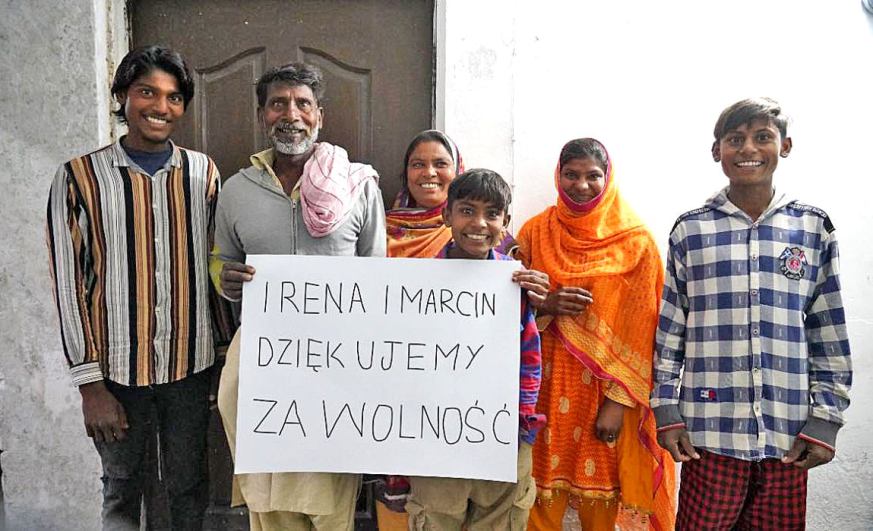 IRENA I MARCIN
DZIĘKUJEMY
ZA WOLNOŚĆ